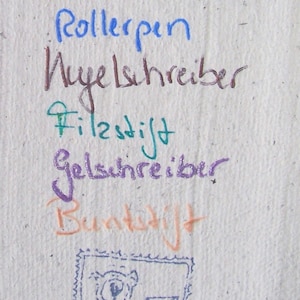 Rollerpen
Kugelschreiber
Filzstift
Gelschreiber
Buntstift